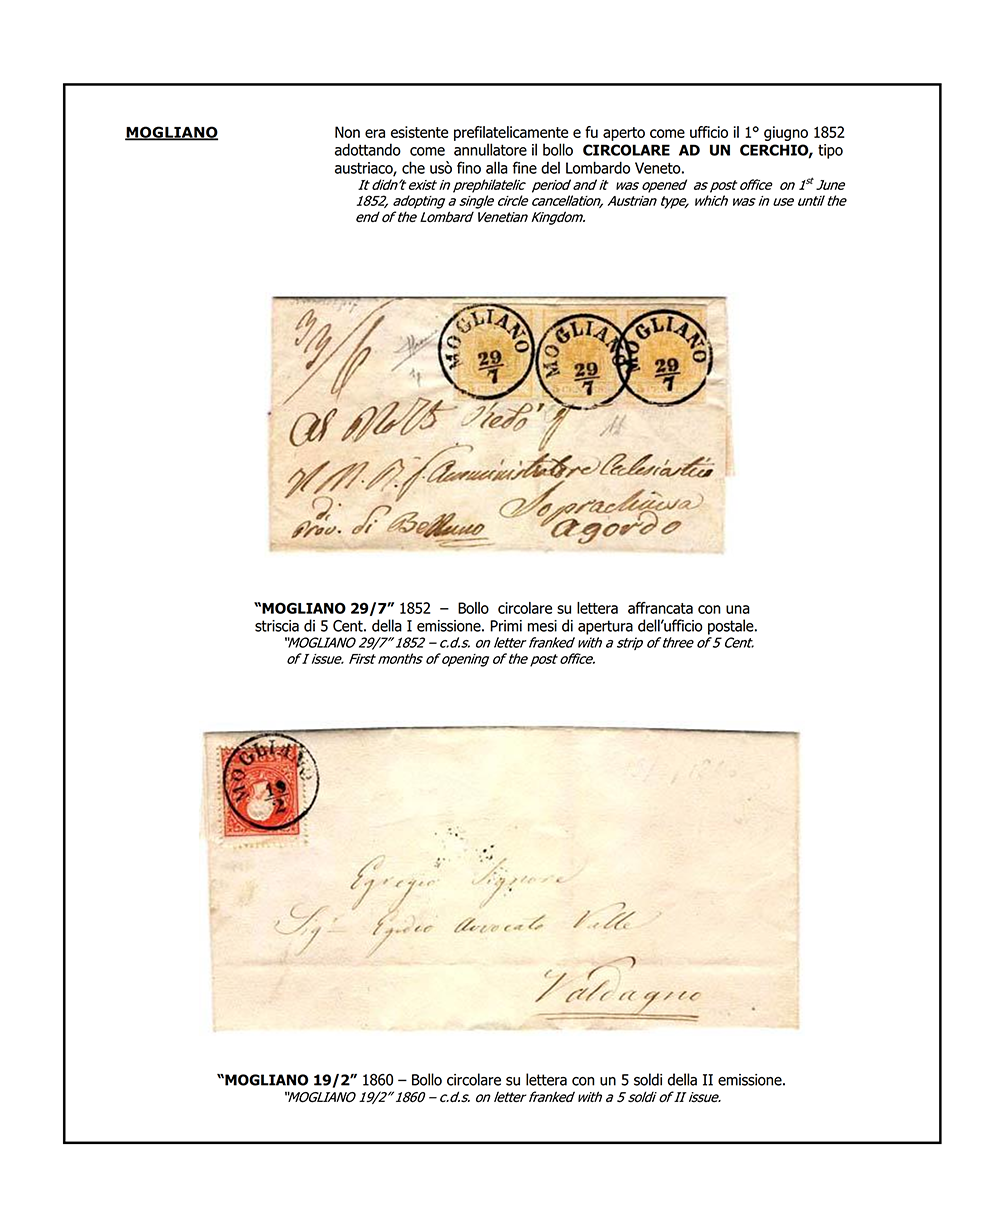 MOGLIANO
Non era esistente prefilatelicamente e fu aperto come ufficio il 1° giugno 1852
adottando come annullatore il bollo CIRCOLARE AD UN CERCHIO, tipo
austriaco, che usò fino alla fine del Lombardo Veneto.
It didn't exist in prephilatelic period and it was opened as post office on 1st June
1852, adopting a single circle cancellation, Austrian type, which was in use until the
end of the Lombard Venetian Kingdom.
MOGLIANO 29/7
MOGLIANO 29/7
MOGLIANO 29/7
Al
Amministratore Eclesiastico
di Soprachiusa
Prov. di Belluno Agordo
"MOGLIANO 29/7" 1852 – Bollo circolare su lettera affrancata con una
striscia di 5 Cent. della I emissione. Primi mesi di apertura dell'ufficio postale.
"MOGLIANO 29/7" 1852 – c.d.s. on letter franked with a strip of three of 5 Cent.
of I issue. First months of opening of the post office.
MOGLIANO 19/2
Egregio Signore
Sigr Egidio Avvocato Valle
Valdagno
"MOGLIANO 19/2" 1860 – Bollo circolare su lettera con un 5 soldi della II emissione.
"MOGLIANO 19/2" 1860 – c.d.s. on letter franked with a 5 soldi of II issue.